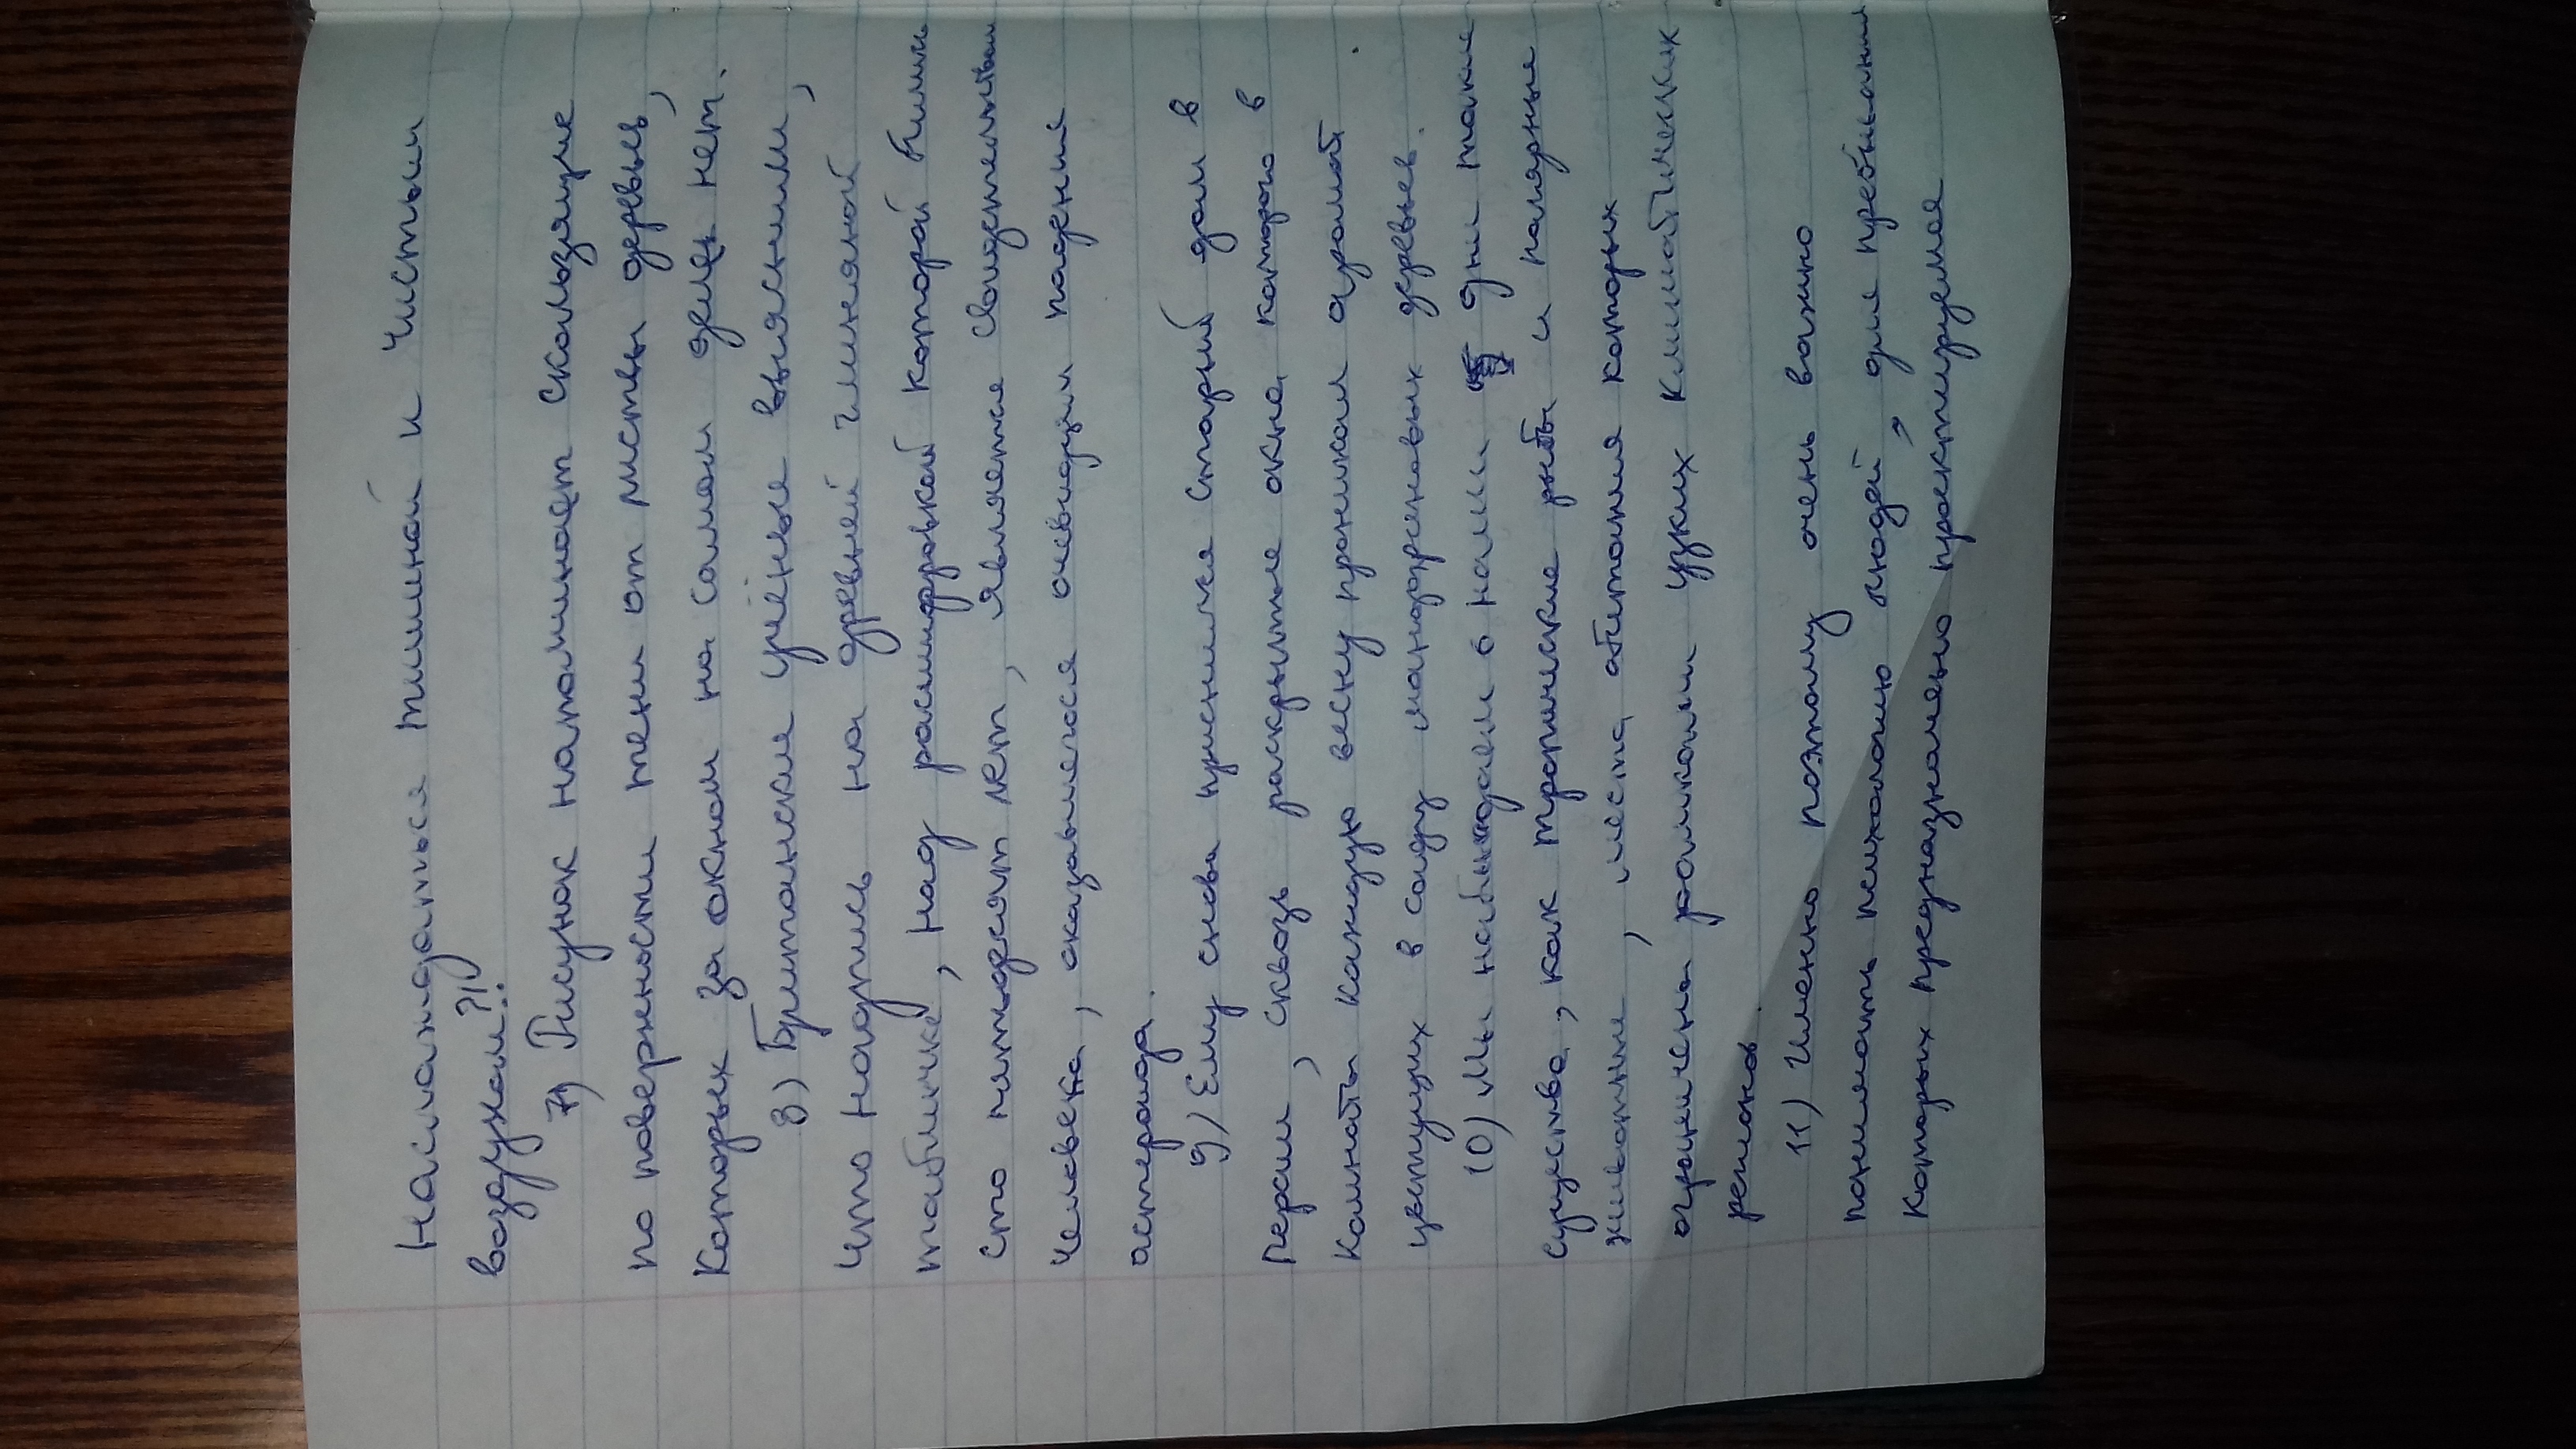 Наслаждаться тишиной и чистым
воздухом?!
7) Рисунок напоминает скользящие
по поверхности тени от листвы деревьев,
которых за окном на самом деле нет.
8) Британские учёные выяснили,
что надпись на древней глиняной
табличке, над расшифровкой которой бились
сто пятьдесят лет, является свидетельством
человека, оказавшегося очевидцем падения
астероида.
9) Ему снова приснился старый дом в
Перси, сквозь раскрытые окна которого в
комнаты каждую весну проникал аромат
цветущих в саду мандариновых деревьев.
10) Мы наблюдаем в наши дни такие
существа, как тропические рыбы и полярные
животные, места обитания которых
ограничены рамками узких климатических
регионов.
11) Именно поэтому очень важно
понимать психологию людей, для пребывания
которых предназначено проектируемое